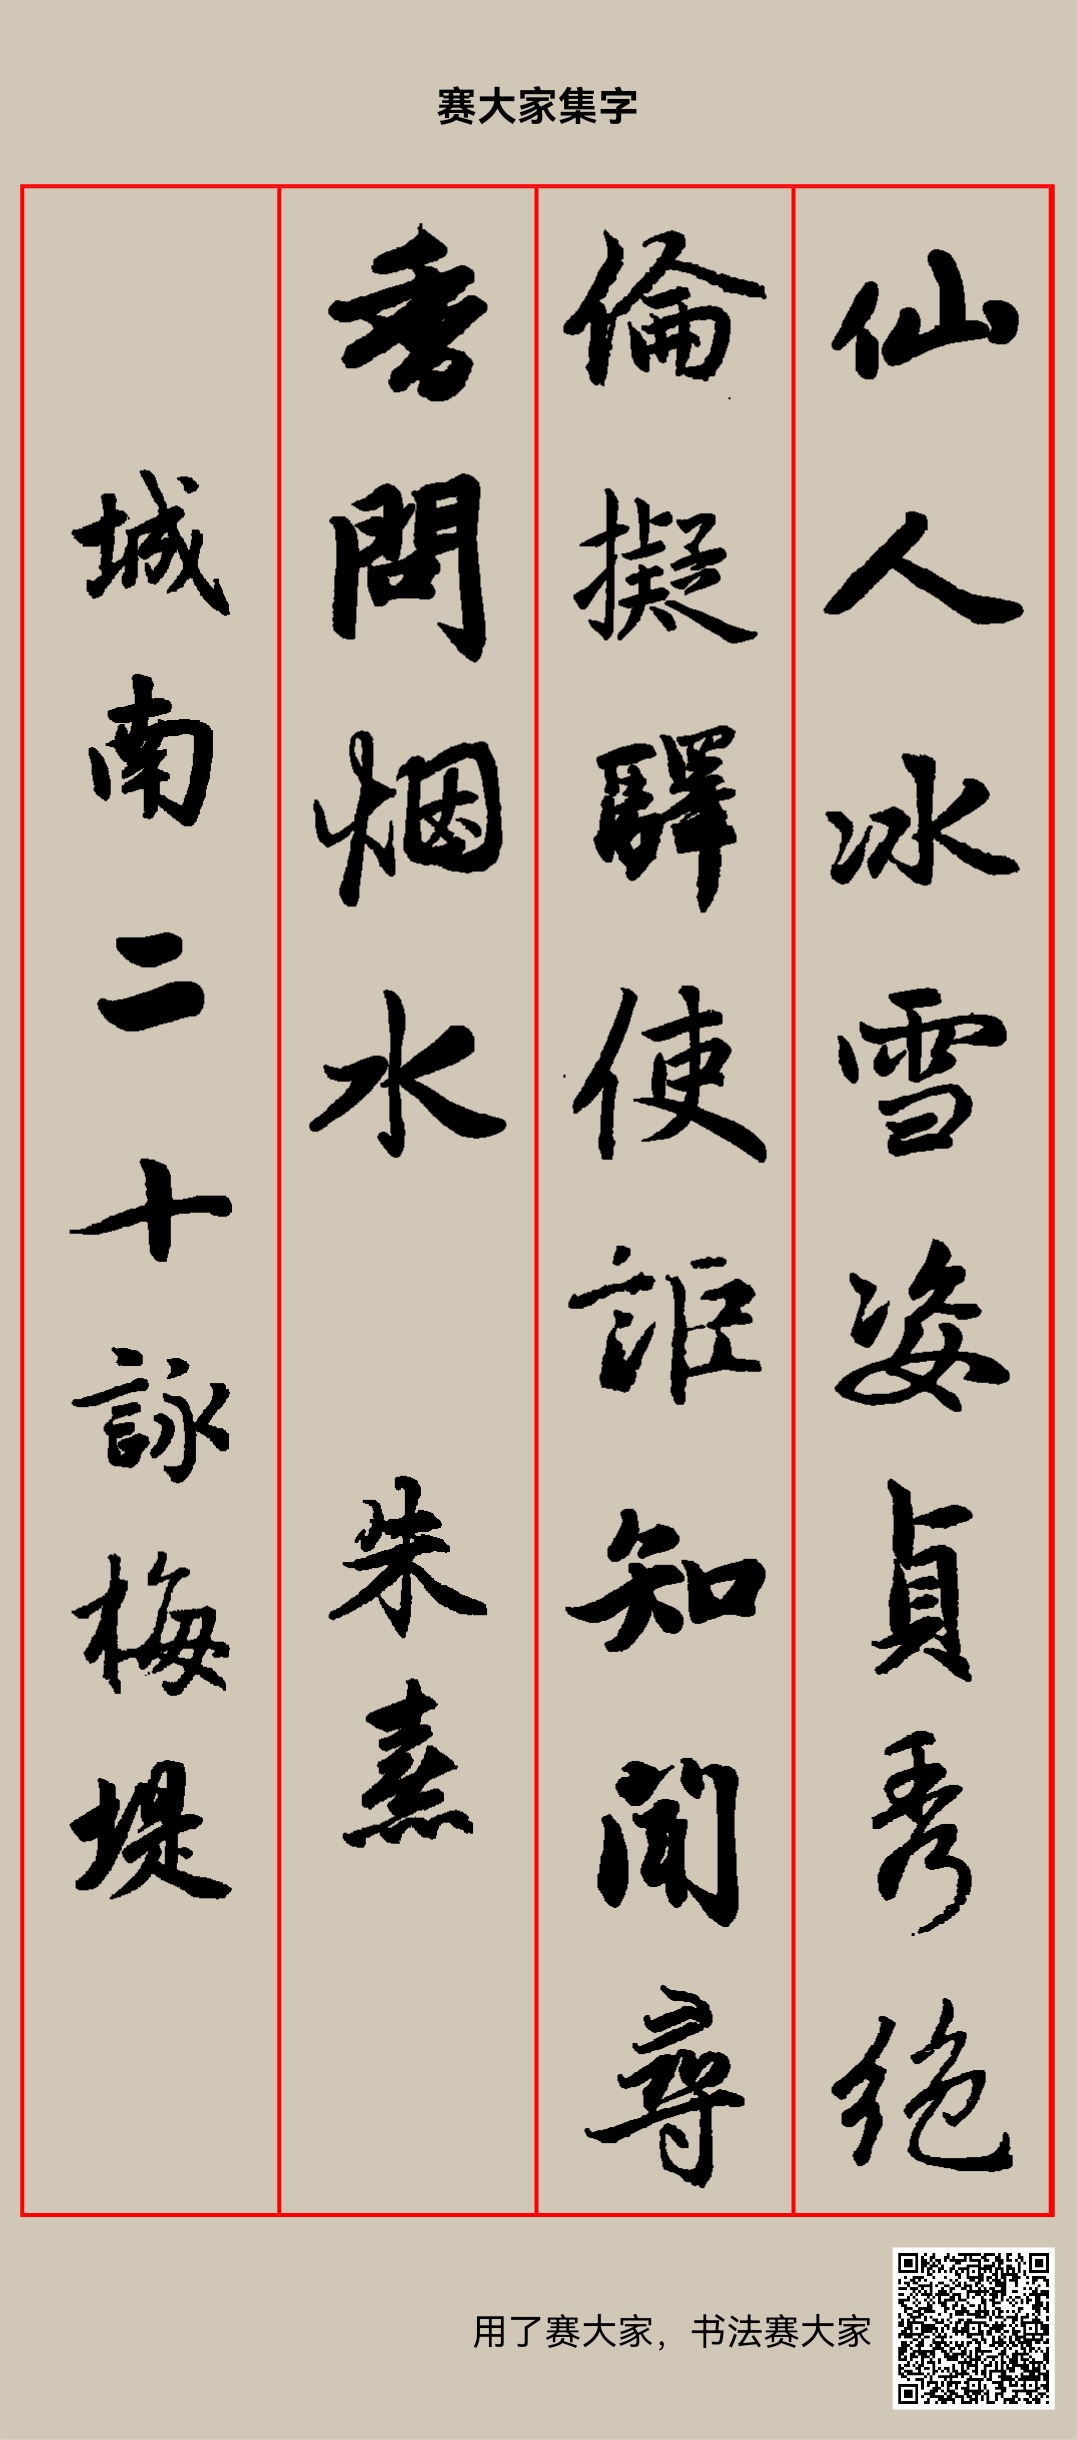 赛大家集字
仙人冰雪姿貞秀绝
倫擬驛使詎知聞尋
香問烟水 朱熹
城南二十詠梅堤
用了赛大家，书法赛大家